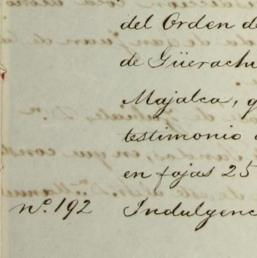 del Orden de
de Güerachi
Majalca, q
testimonio
en fojas 25
nº. 192 Indulgenc